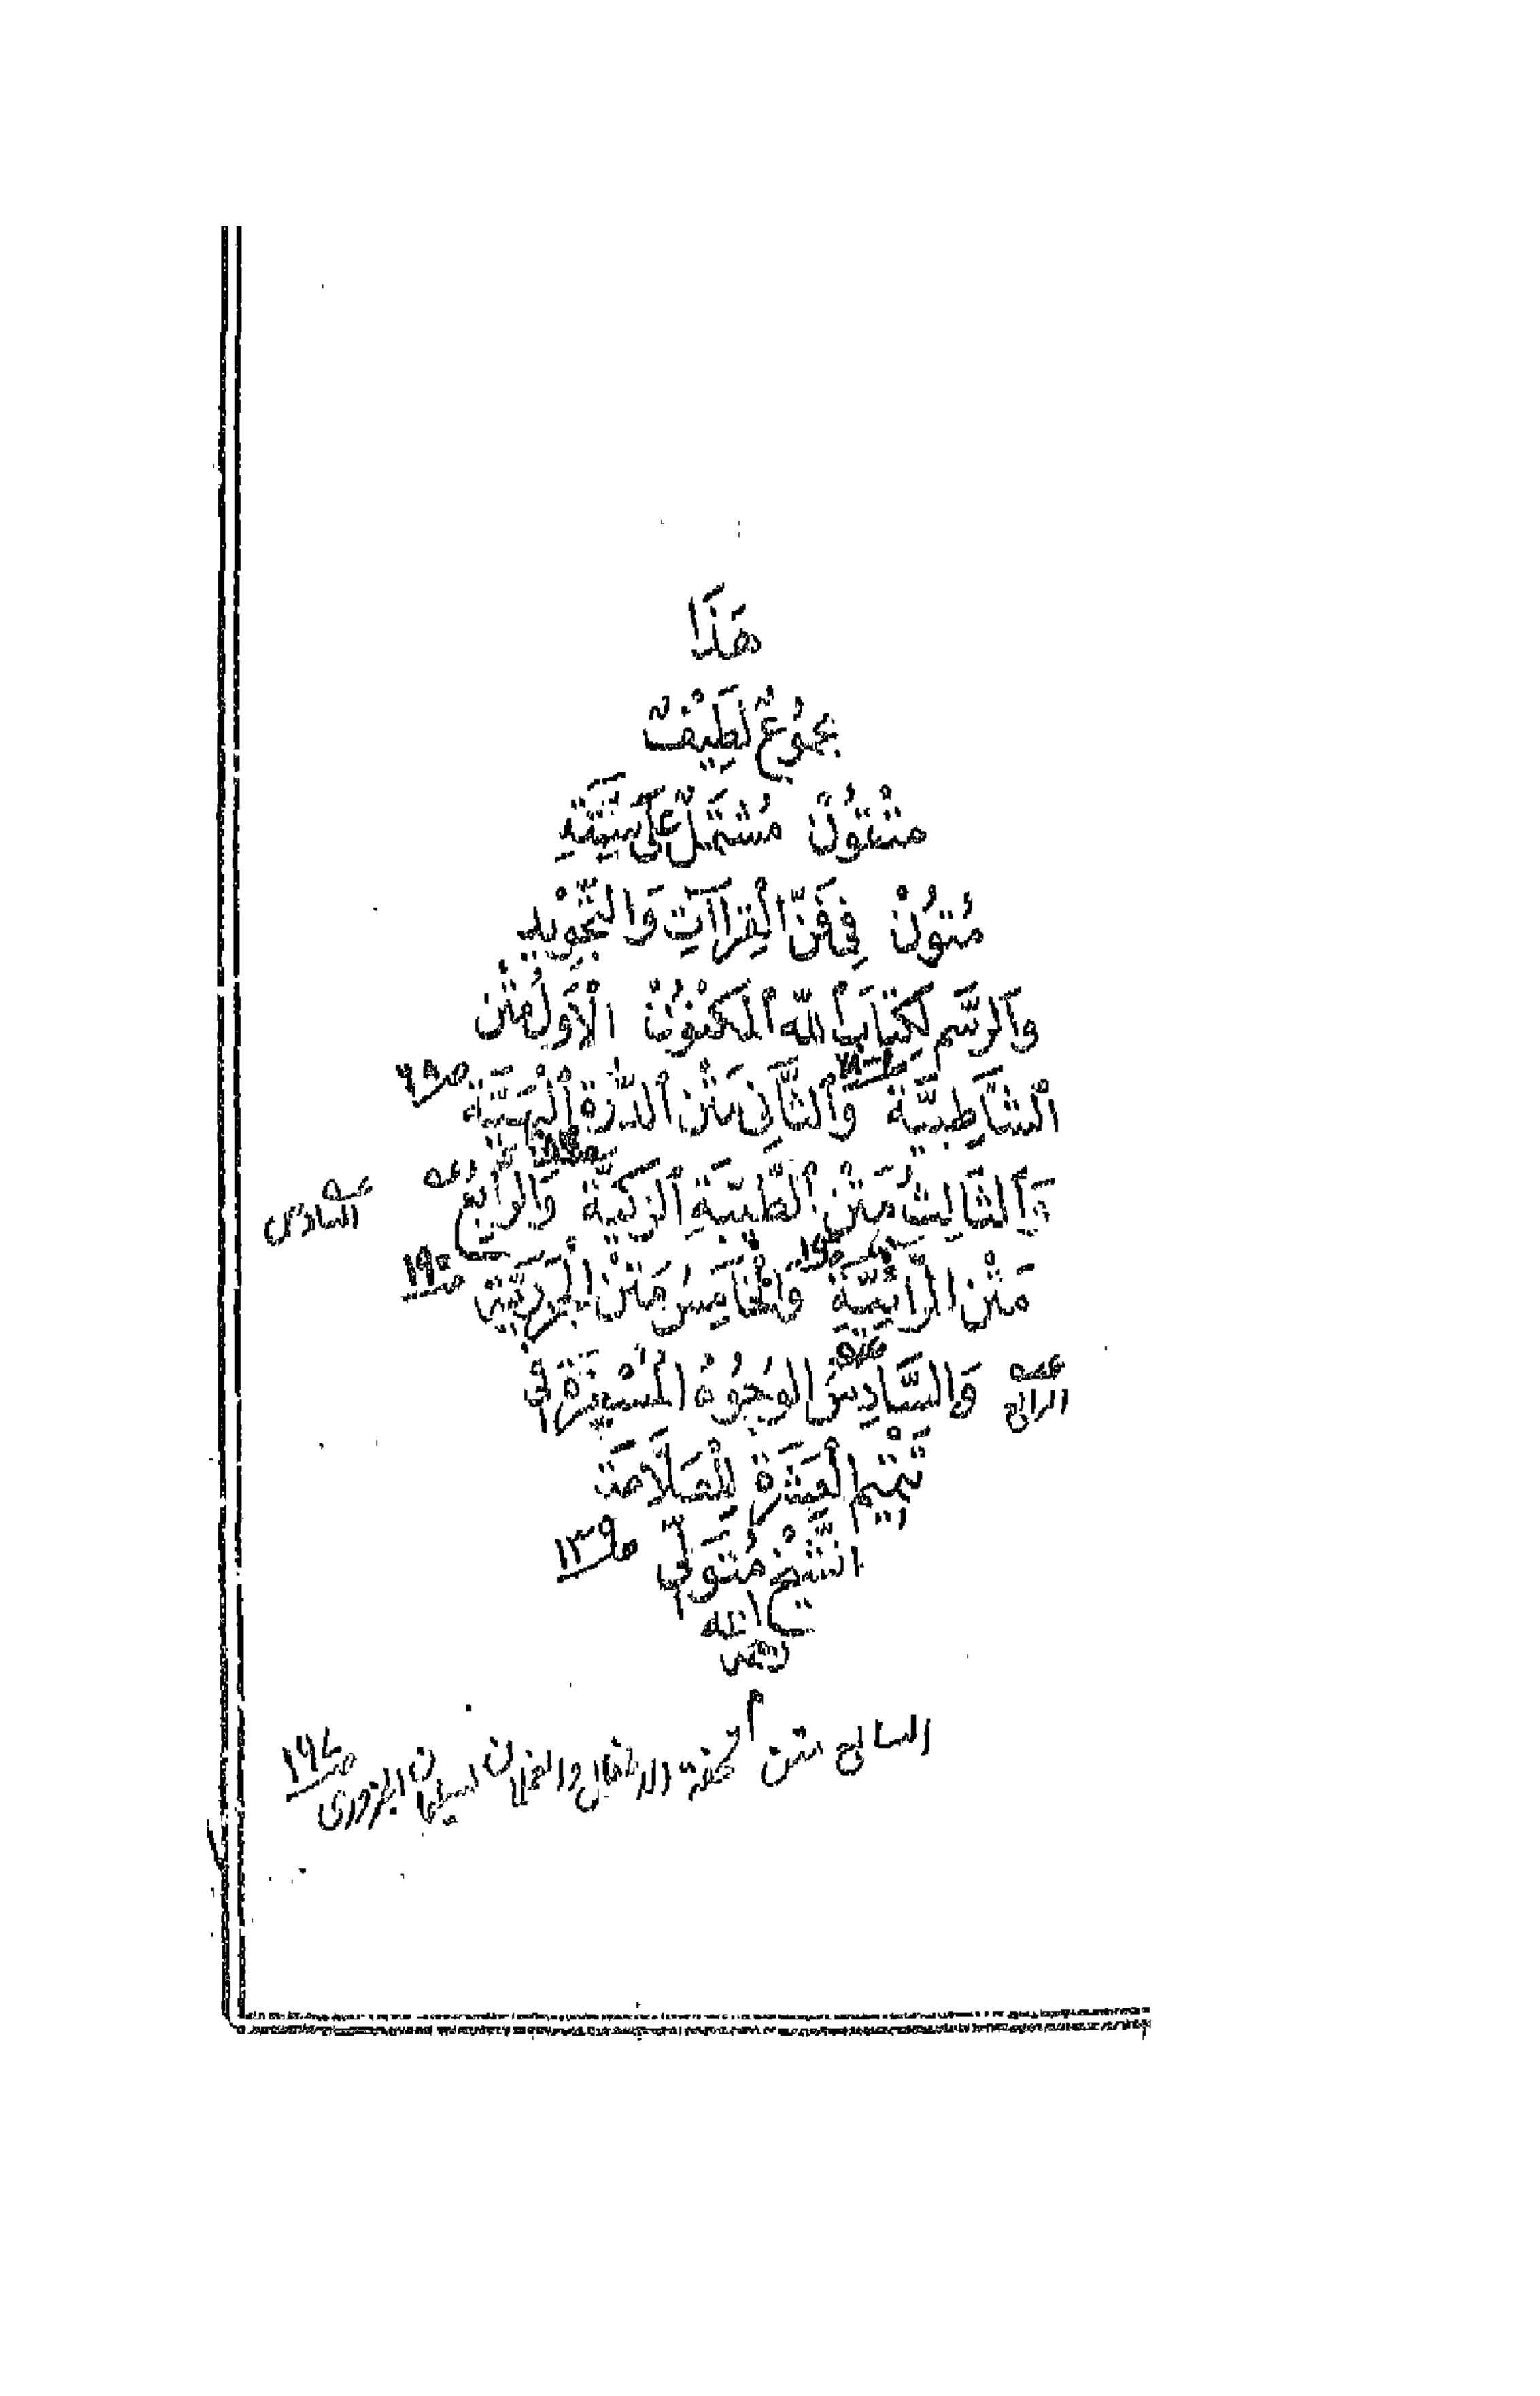 هَذَا
مجمُوْعٌ لَطِيْفٌ
مَثْتُوْنْ مُشْتَمِلٌ عَلَى سِتَّةِ
مُتُوُنْ فِى فَنِّ الْقِرَاآتِ وَالتَّجْوِيْدِ
وَالرَّسْمِ لِكِتَابِ اللّٰهِ الْمَكْنُوُنْ الْاَوَلُ مَتْن
الشَّاطِبِيَّةِ وَالثَّانِى مَتْن الدُّرَّةِ الْبَهِيَّة ص٦٥
وَالثَّالِثُ مَتْن الطَّيِّبَةِ الزَكِيَّة وَالرَّابِعُ السادس
مَتْن الرَّائِيَّةِ وَالْخَامِسُ مَتْن الْجَزَرِيَّة ص١٩٠
الرابع وَالسَّادِسُ الوُجُوْهُ الْمُسْفِرَة فِى
تَتْمِيْمِ الْعَشَرَةِ لِلْعَلَّامَة
الشَّيْخ مُتَوَلِّى ص١٣٩
رحمه الله
م
السابع متن تحفة الاطفال والغلمان لسليمان الجمزورى ص١٩٧